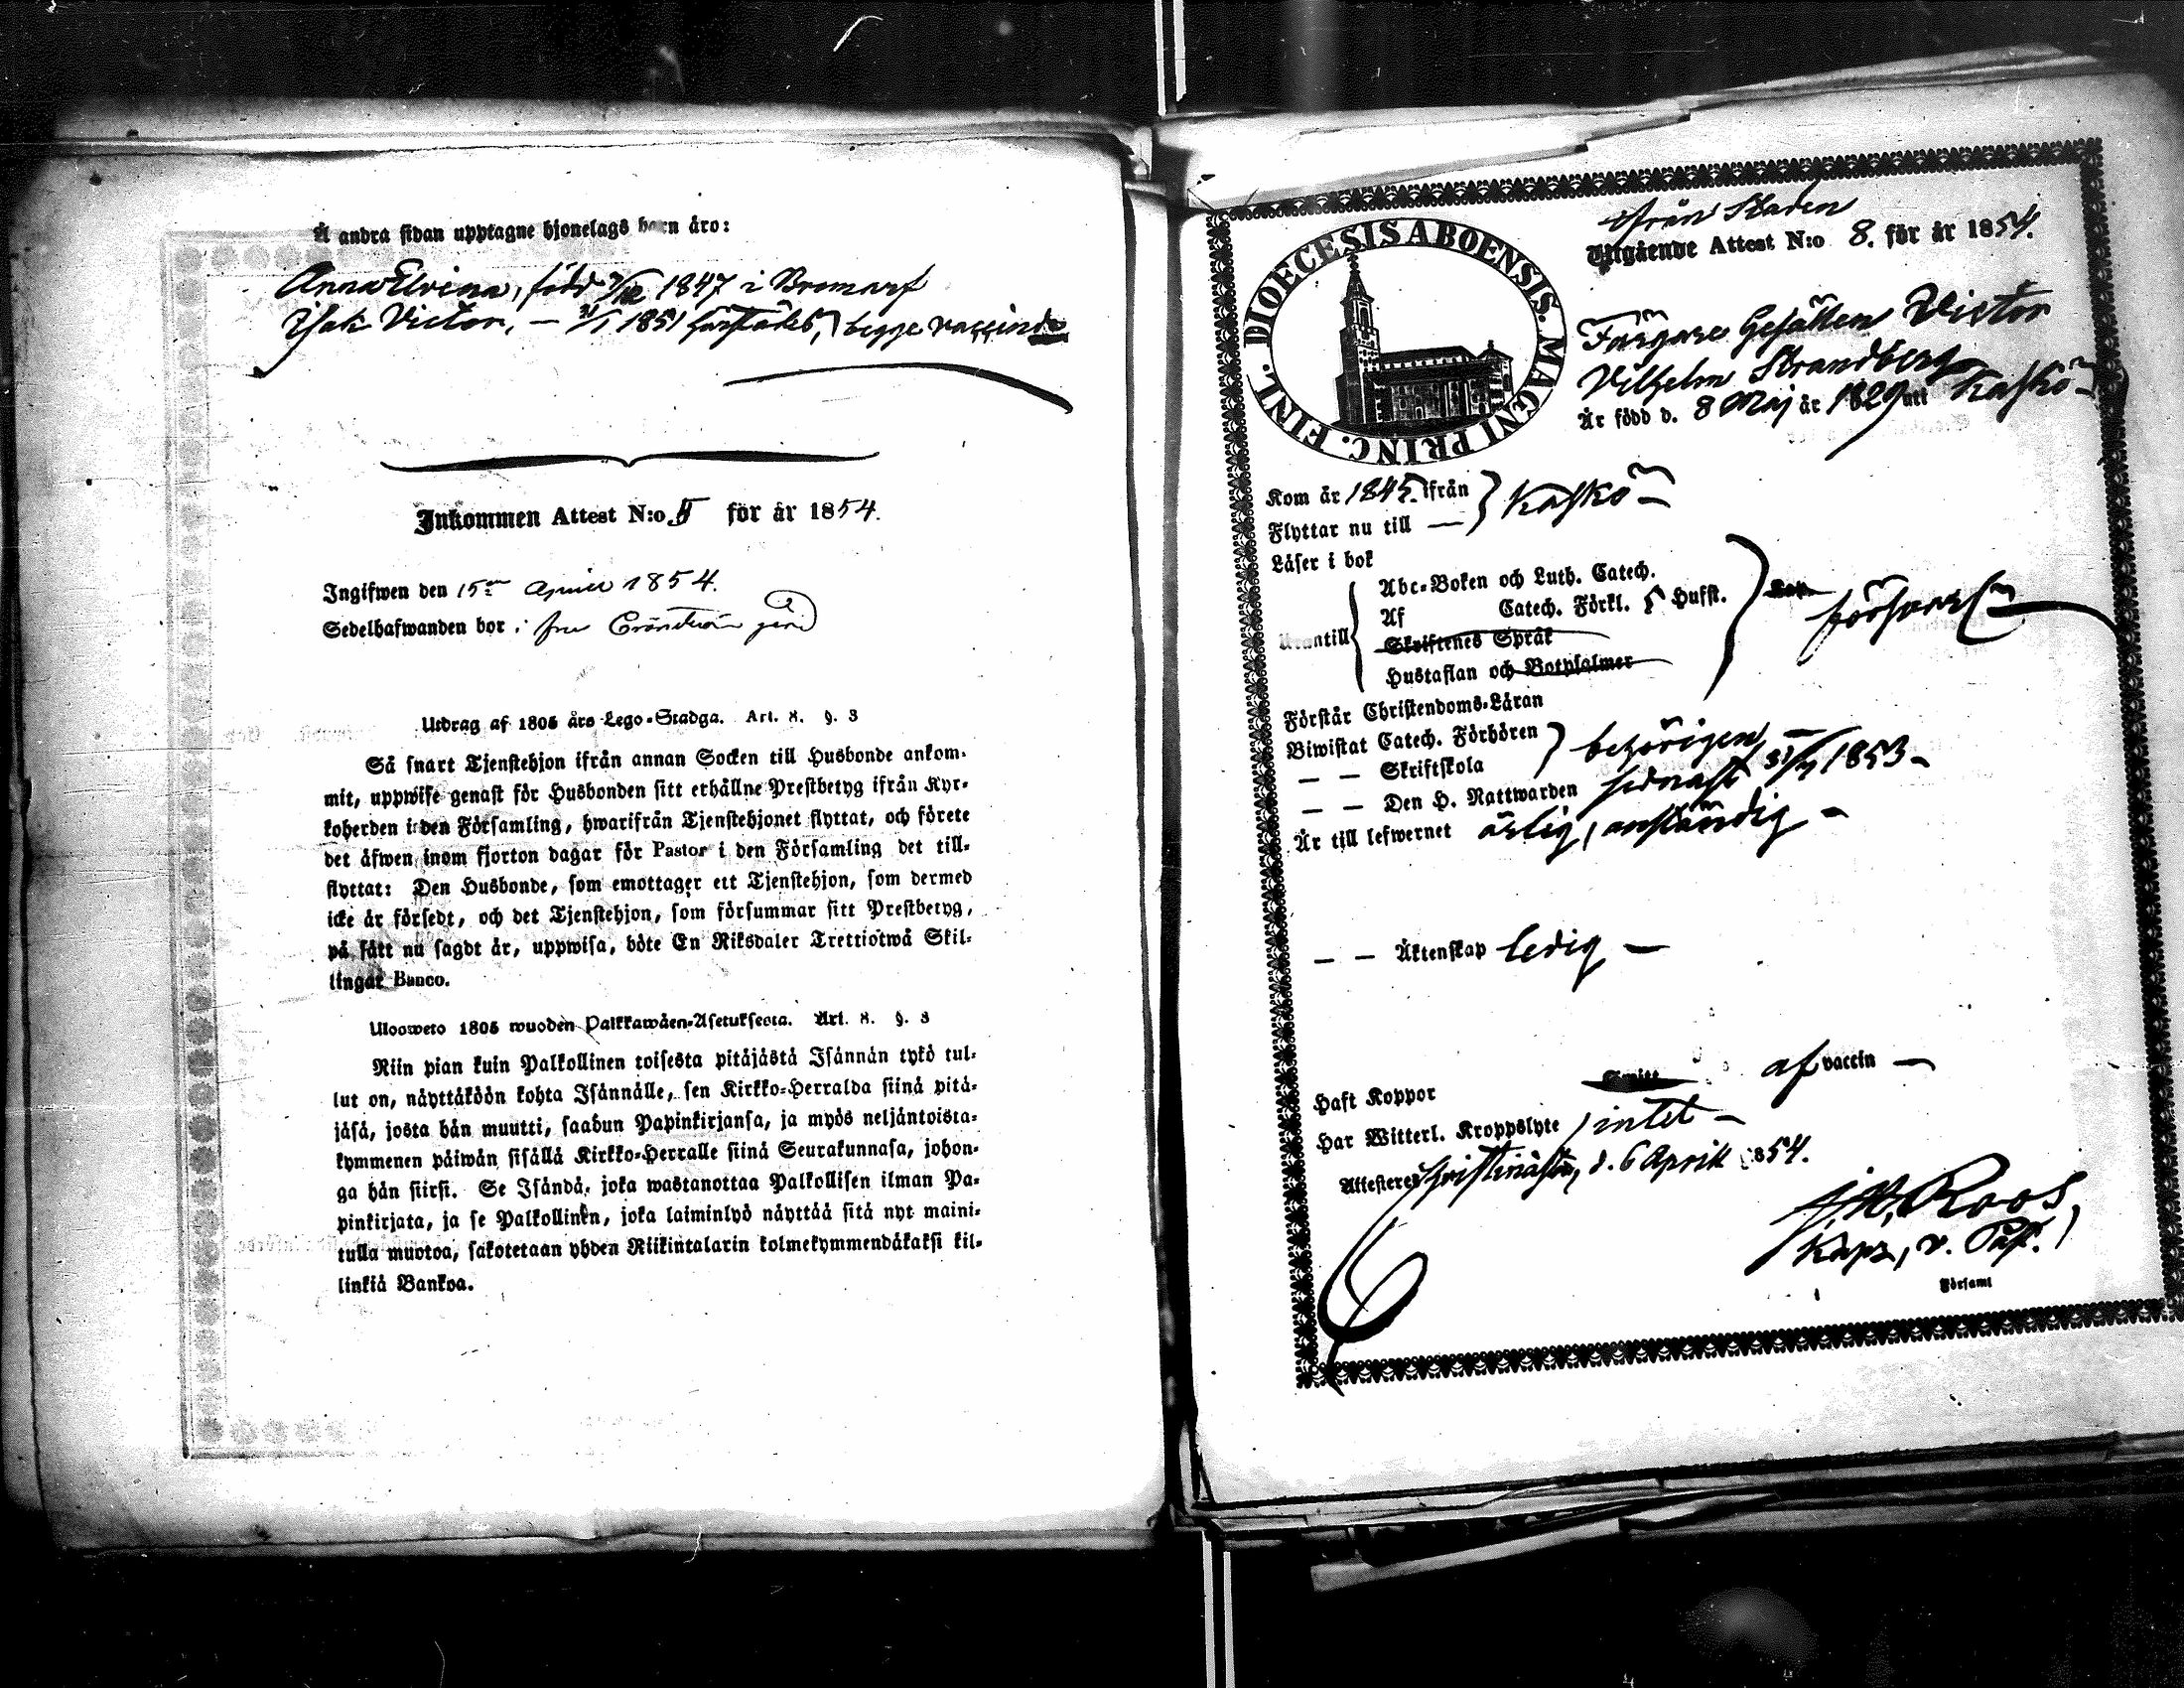 Å andra sidan upptagne hjonelags barn äro:
Anna Elvina, född 7/12 1847 i Bromarf
Isak Victor, — 21/1 1851 härstädes, begge vaccinde
Inkommen Attest N:o 5 för år 1854.
Ingifwen den 15de April 1854.
Sedelhafwanden bor i fru gård
Utdrag af 1805 års Lego-Stadga. Art. 8. §. 3
Så snart Tjenstehjon ifrån annan Socken till Husbonde ankom-
mit, uppwise genast för Husbonden sitt erhållne Prestbetyg ifrån Kyr-
koherden i den Församling, hwarifrån Tjenstehjonet flyttat, och förete
det äfwen inom fjorton dagar för Pastor i den Församling det till-
flyttat: Den Husbonde, som emottager ett Tjenstehjon, som dermed
icke är försedt, och det Tjenstehjon, som försummar sitt Prestbetyg,
på sätt nu sagdt är, uppwisa, böte En Riksdaler Trettiotwå Skil-
lingar Banco.
Uloosweto 1805 wuoden Palkkawäen-Asetuksesta. Art. 8. §. 3
Niin pian kuin Palkollinen toisesta pitäjästä Isännän tykö tul-
lut on, näyttäköön kohta Isännälle, sen Kirkko-Herralda siinä pitä-
jäsä, josta hän muutti, saadun Papinkirjansa, ja myös neljäntoista-
kymmenen päiwän sisällä Kirkko-Herralle siinä Seurakunnasa, johon-
ga hän siirsi. Se Isändä, joka wastanottaa Palkollisen ilman Pa-
pinkirjata, ja se Palkollinen, joka laiminlyö näyttää sitä nyt maini-
tulla muotoa, sakotetaan yhden Riikintalarin kolmekymmendäkaksi kil-
linkiä Bankoa.
DIOECESIS ABOENSIS. MAGNI PRINC. FINL.
ifrån Staden
Utgående Attest N:o 8. för år 1854.
Färgare Gesällen Victor
Vilhelm Strandberg
Är född d. 8 Maj år 1829 uti Kaskö
Kom år 1845. ifrån } Kaskö
Flyttar nu till —
Läser i bok
Abc-Boken och Luth. Catech.
Af Catech. Förkl. 5 Hufst.
Utantill Skriftenes Språk
Hustaflan och Botpsalmer
försvarl.
Förstår Christendoms-Läran
Biwistat Catech. Förhören } behörigen —
— — Skriftskola
— — Den H. Nattwarden sednast 31/7 1853 —
Är till lefwernet ärlig, anständig —
— — Äktenskap ledig —
Haft Koppor af vaccin —
Har Witterl. Kroppslyte intet —
Attesterar Christinestad, d. 6 April 1854.
Roos
Kapz, v. Past.
Församl